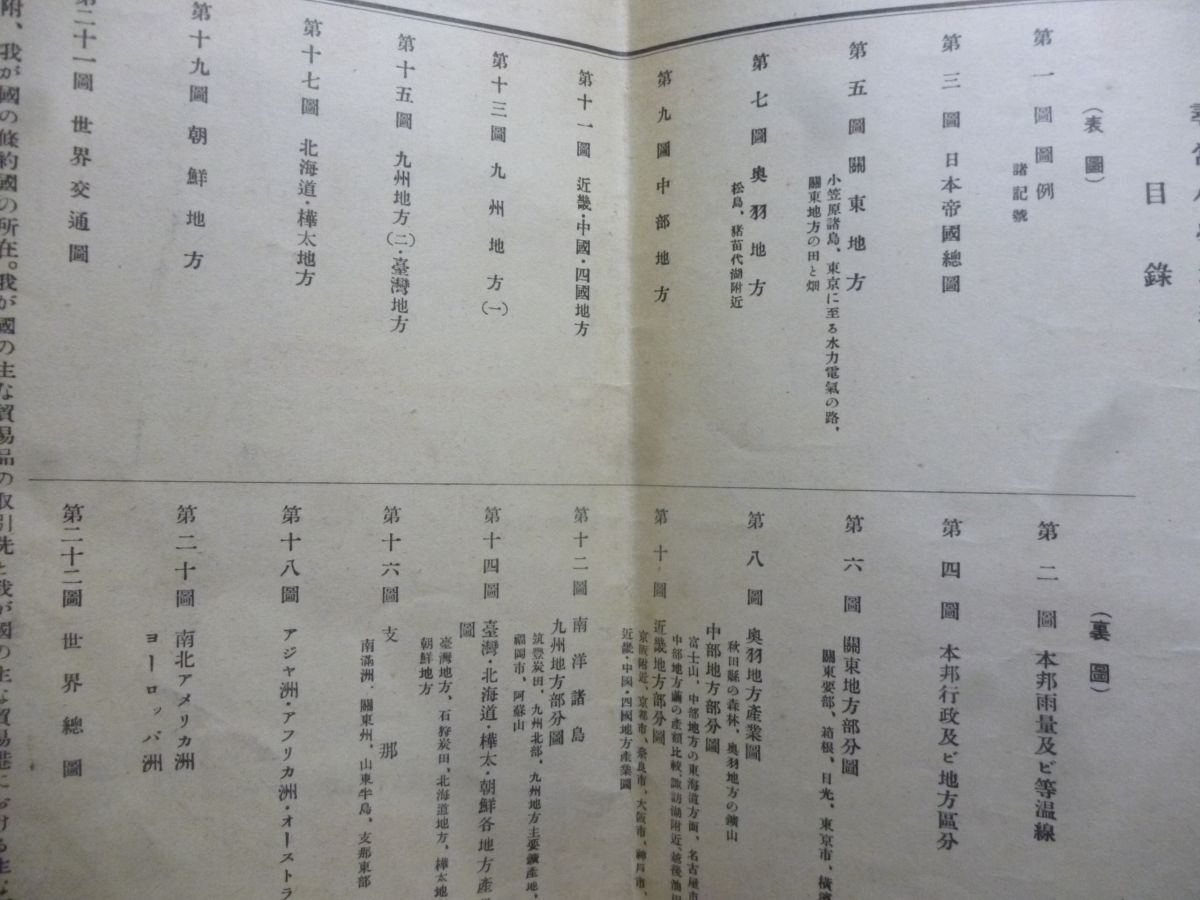 目錄
（表圖）
第一圖 圖例
諸記號
第三圖 日本帝國總圖
第五圖 關東地方
小笠原諸島、東京に至る水力電氣の路、
關東地方の田と畑
第七圖 奥羽地方
松島、猪苗代湖附近
第九圖 中部地方
第十一圖 近畿・中國・四國地方
第十三圖 九州地方（一）
第十五圖 九州地方（二）・臺灣地方
第十七圖 北海道・樺太地方
第十九圖 朝鮮地方
第二十一圖 世界交通圖
（裏圖）
第二圖 本邦雨量及ビ等溫線
第四圖 本邦行政及ビ地方區分
第六圖 關東地方部分圖
關東要部、箱根、日光、東京市、橫濱
第八圖 奥羽地方產業圖
秋田縣の森林、奥羽地方の鑛山
中部地方部分圖
富士山、中部地方の東海道方面、名古屋市
中部地方繭の產額比較、諏訪湖附近、越後油田
第十圖 近畿地方部分圖
京阪附近、京都市、奈良市、大阪市、神戶市、
近畿・中國・四國地方產業圖
第十二圖 南洋諸島
九州地方部分圖
筑豐炭田、九州北部、九州地方主要鑛產地、
福岡市、阿蘇山
第十四圖 臺灣・北海道・樺太・朝鮮各地方產
圖
臺灣地方、石狩炭田、北海道地方、樺太地
朝鮮地方
第十六圖 支那
南滿洲、關東州、山東半島、支那東部
第十八圖 アジヤ洲・アフリカ洲・オーストラ
第二十圖 南北アメリカ洲
ヨーロッパ洲
第二十二圖 世界總圖
附、我が國の條約國の所在。我が國の主な貿易品の取引先と我が國の主な貿易港に於ける主な